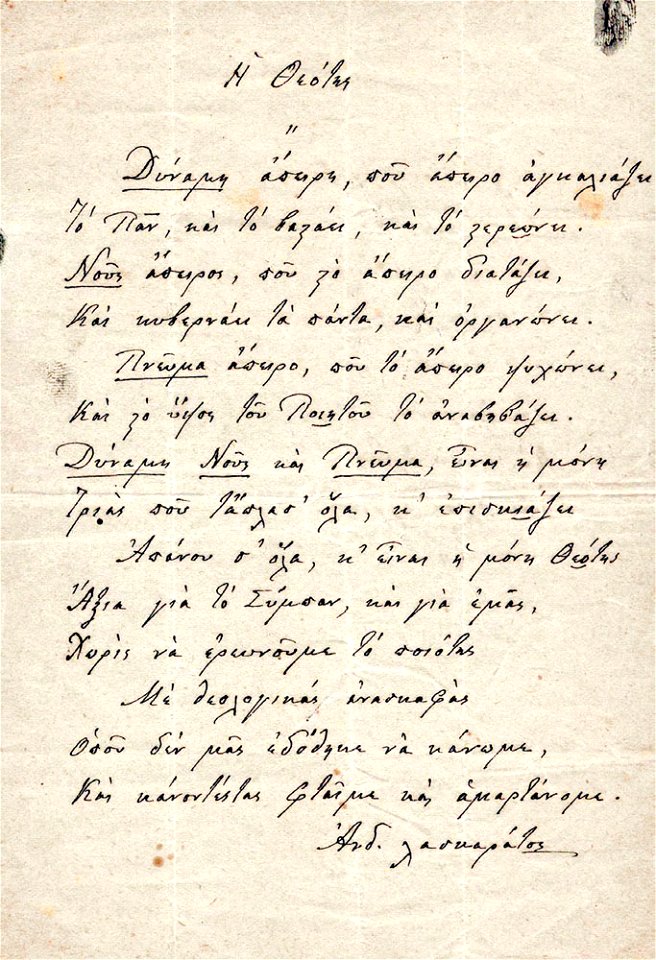 Ἡ Θεότης
"
Δύναμη ἄπειρη, ποῦ ἄπειρο ἀγκαλιάζει
Τὸ Πᾶν, καὶ τὸ βαλάει, καὶ τὸ
Νοῦς ἄπειρος, ποῦ τὸ ἄπειρο διατάζει,
Καὶ κυβερνάει τὰ πάντα, καὶ ὀργανώνει.
Πνεῦμα ἄπειρο, ποῦ τὸ ἄπειρο ψυχώνει,
Καὶ τὸ ὕψος τοῦ Ποιητοῦ τὸ ἀναβηβάζει.
Δύναμη Νοῦς καὶ Πνεῦμα, εἶναι ἡ μόνη
Τριὰς ποῦ τἄπλασ' ὅλα, κ' ἐπισκιάζει
Ἀπάνου σ' ὅλα, κ' εἶναι ἡ μόνη Θεότης
Ἄξια γιὰ τὸ Σύμπαν, καὶ γιὰ ἐμᾶς,
Χωρὶς νὰ ἐρευνοῦμε τὸ ποιότης
Μὲ θεολογικὰς ἀνασκαφὰς
Ὁποῦ δέν μᾶς ἐδόθηκε νὰ κάνωμε,
Καὶ κάνοντέςτας φταῖμε καὶ ἁμαρτάνομε.
Ἀνδ. Λασκαράτος